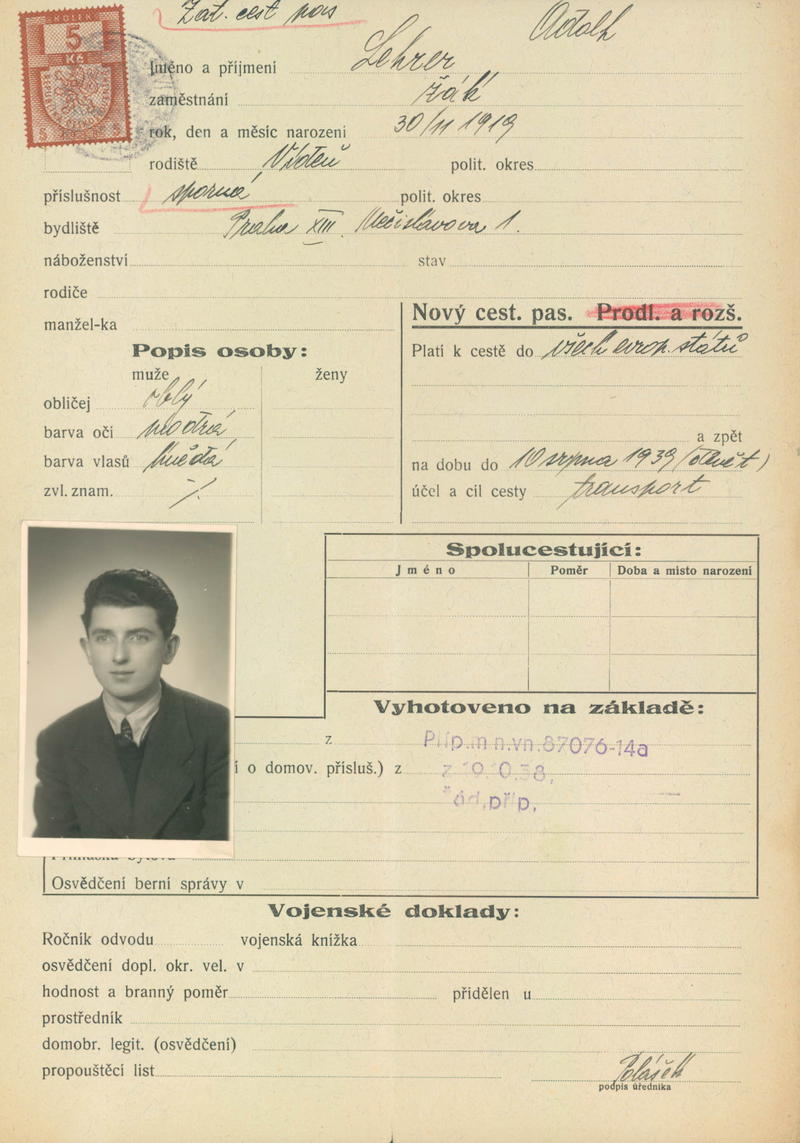 Zat. cest pas
KOLEK
5
Kč
Lehrer Adolf
Jméno a příjmení
zaměstnání žák
rok, den a měsíc narození 30/11 1919
rodiště Vídeň polit. okres
příslušnost sporná polit. okres
bydliště Praha XIII. Mečislavova 1.
náboženství stav
rodiče
manžel-ka
Nový cest. pas. Prodl. a rozš.
Popis osoby:
Platí k cestě do všech evrop. států
muže ženy
obličej oblý
barva očí modrá
a zpět
barva vlasů hnědá
na dobu do 10 srpna 1939
zvl. znam. ./.
účel a cíl cesty transport
Spolucestující:
Jméno Poměr Doba a místo narození
Vyhotoveno na základě:
z Příp.m n.vn.87076-14a
í o domov. přísluš.) z
příp.
Osvědčení berní správy v
Vojenské doklady:
Ročník odvodu vojenská knížka
osvědčení dopl. okr. vel. v
hodnost a branný poměr přidělen u
prostředník
domobr. legit. (osvědčení)
propouštěcí list Polášek
podpis úředníka